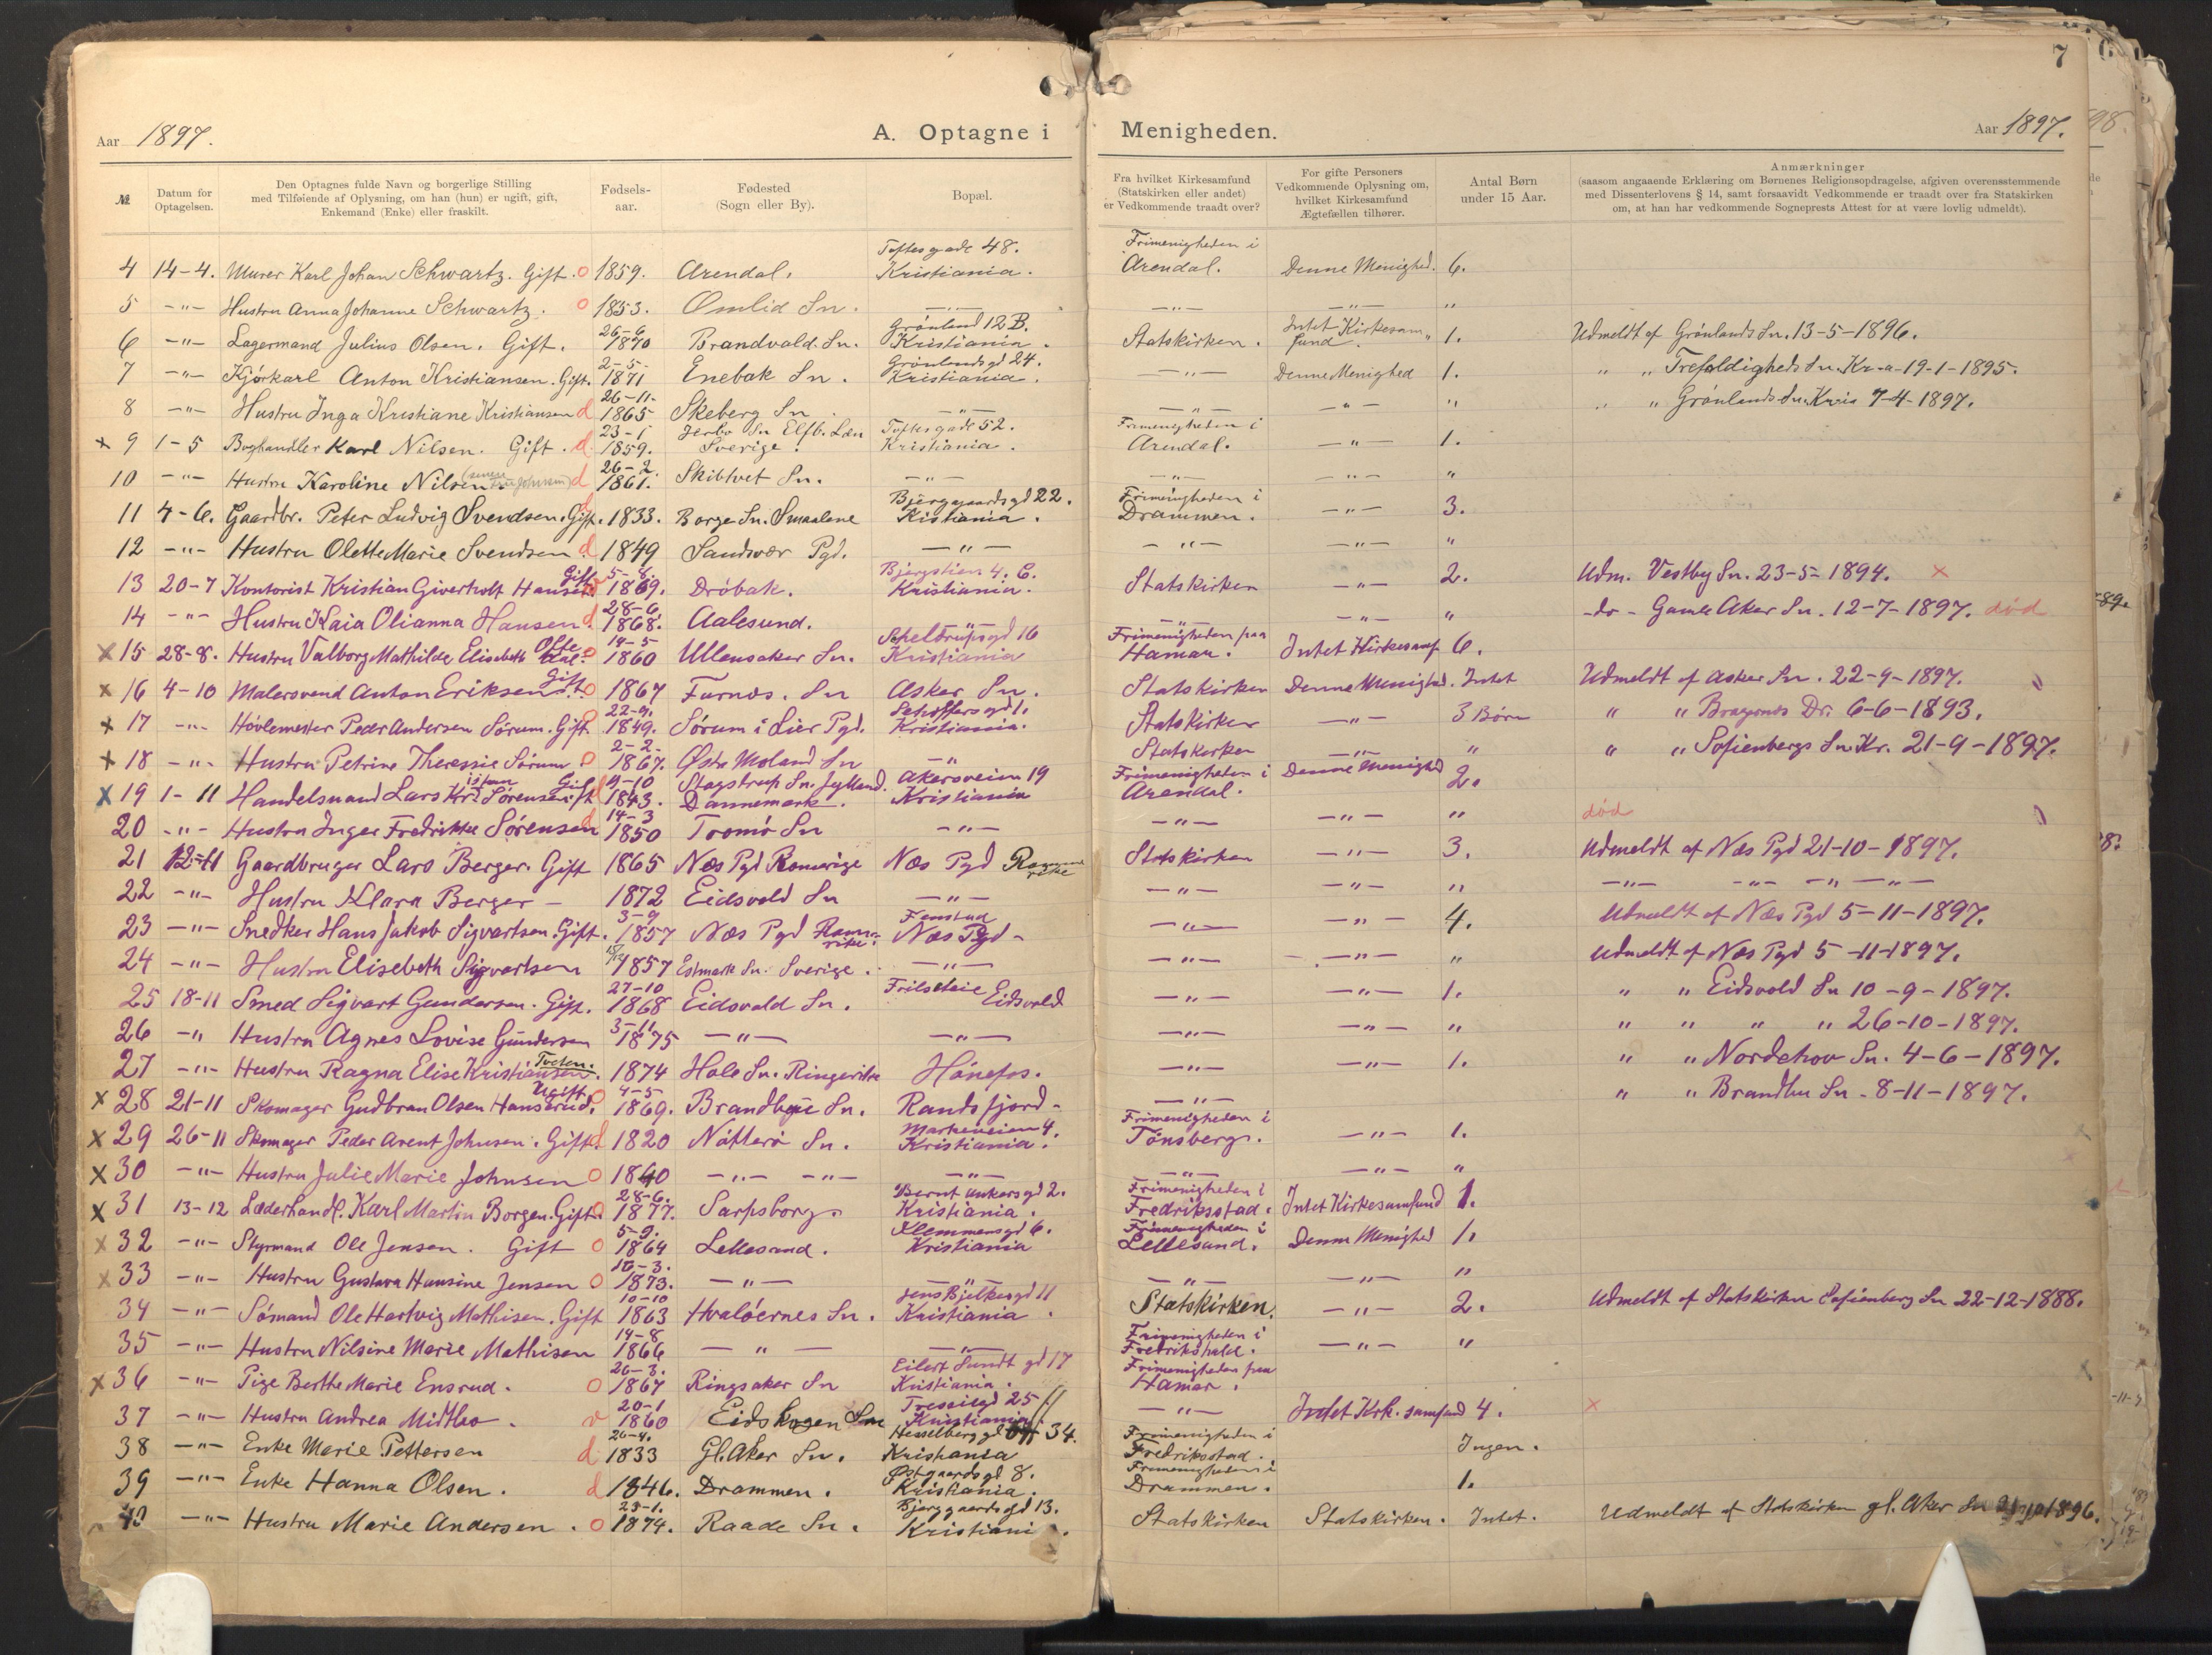 7
Aar 1897. A. Optagne i Menigheden. Aar 1897.
№ | Datum for Optagelsen. | Den Optagnes fulde Navn og borgerlige Stilling med Tilføiende af Oplysning, om han (hun) er ugift, gift, Enkemand (Enke) eller fraskilt. | Fødselsaar. | Fødested (Sogn eller By). | Bopæl. | Fra hvilket Kirkesamfund (Statskirken eller andet) er Vedkommende traadt over? | For gifte Personers Vedkommende Oplysning om, hvilket Kirkesamfund Ægtefællen tilhører. | Antal Børn under 15 Aar. | Anmærkninger (saasom angaaende Erklæring om Børnenes Religionsopdragelse, afgiven overensstemmende med Dissenterlovens § 14, samt forsaavidt Vedkommende er traadt over fra Statskirken om, at han har vedkommende Sogneprests Attest for at være lovlig udmeldt).
4 14-4. Murer Karl Johan Schwartz. Gift. o 1859. Arendal. Toftesgade 48. Kristiania. Frimenigheden i Arendal. Denne Menighed. 6.
5 -"- Hustru Anna Johanne Schwartz. o 1853. Omlid Sn. -"- -"- -"- "
6 -"- Lagermand Julius Olsen. Gift. 26-6 1870 Brandvold. Sn. Grønland 12 B. Kristiania. Statskirken. Intet Kirkesamfund. 1. Udmeldt af Grønlands Sn. 13-5-1896.
7 -"- Kjørkarl Anton Kristiansen. Gift. 2-5- 1871 Enebak Sn. Grønlandsgd 24. Kristiania. -"- Denne Menighed 1. " " Trefoldigheds Sn. Kr-a-19-1-1895.
8 -"- Hustru Inga Kristiane Kristiansen d 26-11- 1865 Skeberg Sn. -"- -"- -"- " " " Grønlands Sn. Kria 7-4-1897.
x 9 1-5 Boghandler Karl Nilsen. Gift. d. 23-1 1859. Jerbo Sn Elfb. Læn Sverige. Toftesgade 52. Kristiania. Frimenigheden i Arendal. -"- 1.
10 -"- Hustru Karoline Nilsen d 26-2. 1861. Skibtvet Sn. -"- -"- -"- "
11 4-6. Gaardbr. Peter Ludvig Svendsen. Gift. 1833. Borge Sn. Smaalene Bjerggaardsgd 22. Kistiania. Frimenigheden i Drammen. -"- 3.
12 -"- Hustru Olette Marie Svendsen. d 1849 Sandsvær Pgd. -"- -"- -"- "
13 20-7 Kontorist Kristian Giverholt Hansen. Gift 5-8. 1869. Drøbak. Bjergstien 4. Kristiania. Statskirken -"- 2. Udm. Vestby Sn. 23-5-1894. x
14 -"- Hustru Kaia Olianna Hansen. d 28-6. 1868. Aalesund. -"- -"- -"- " -do- Gamle Aker Sn. 12-7-1897. død
x 15 28-8. Hustru Valborg Mathilde Elisabeth Ofte o 14-5 1860 Ullensaker Sn. Scheltrupsgd 16 Kristiania Frimenigheden paa Hamar. Intet Kirkesamf 6.
x 16 4-10 Malersvend Anton Eriksen Gift. o 1867 Furnæs. Sn Asker Sn. Statskirken Denne Menighed. Intet Udmeldt af Asker Sn. 22-9-1897.
x 17 -"- Høvlemester Peder Andersen Sørum. Gift o 22-9. 1849. Sørum i Lier Pgd. Schøffersgd 1. Kristiania. Statskirken -"- 3 Børn " " Bragernæs Dr. 6-6-1893.
x 18 -"- Hustru Petrine Theresie Sørum o 2-2- 1867. Østr Moland Sn -"- Statskirken -"- " " " Sofienbergs Sn Kr. 21-9-1897.
x 19 1-11 Handelsmand Lars Kristian Sørensen. Gift 9-10 1843. Stagstrup Sn. Jylland. Dannemark. Akersveien 19 Kristiania Frimenigheden i Arendal. Denne Menighed 2.
20 -"- Hustru Inger Fredrikke Sørensen d 14-3 1850 Tromø Sn -"- -"- -"- " død
21 12-11 Gaardbruger Lars Berger. Gift 1865 Næs Pgd Romerige Næs Pgd Romerike Statskirken -"- 3. Udmeldt af Næs Pgd 21-10-1897.
22 -"- Hustru Klara Berger - 1872 Eidsvold Sn -"- -"- -"- " -"- -"- -"- -"-
23 -"- Snedker Hans Jakob Sigvartsen. Gift. 3-9 1857 Næs Pgd Romerike. Fenstad Næs Pgd- -"- -"- 4. Udmeldt af Næs Pgd 5-11-1897.
24 -"- Hustru Elisebeth Sigvartsen 1857 Estmark Sn. Sverige. -"- -"- -"- " Udmeldt af Næs Pgd 5-11-1897.
25 18-11 Smed Sigvart Gundersen. Gift. 27-10 1868 Eidsvold Sn. Eidsvold -"- -"- 1. " " Eidsvold Sn 10-9-1897.
26 -" Hustru Agnes Lovise Gundersen 3-11 1875 -"- -"- -"- -"- " " " " " 26-10-1897.
27 -"- Hustru Ragna Elise Kristiansen. Tveten. 1874 Hole Sn. Ringerike Hønefos. -"- -"- 1. " " Nordehov Sn. 4-6-1897.
x 28 21-11 Skomager Gudbran Olsen Hansbrud. Ugift o 4-5 1869. Brandbu Sn. Randsfjord- -"- " " Brandbu Sn. 8-11-1897.
x 29 26-11 Skomager Peder Arent Johnsen. Gift. d 1820 Nøtterø Sn. Markeveien 4. Kristiania. Frimenigheden i Tønsberg. -"- 1.
x 30 -"- Hustru Julie Marie Johnsen o 1840 -"- -"- -"- -"- -"- "
x 31 13-12 Læderhandl. Karl Martin Borgen. Gift o 28-6. 1877. Sarpsborg. Bernt Ankersgd 2. Kristiania. Frimenigheden i Fredriksstad. Intet Kirkesamfund 1.
x 32 -"- Styrmand Ole Jensen. Gift o 5-9. 1864 Lellesand. Klemmensgd 6. Kristiania Frimenigheden i Lellesand. Denne Menighed 1.
x 33 -"- Hustru Gustava Hansine Jensen o 16-3. 1873. -"- -"- -"- -"- "
34 -"- Sømand Ole Hartvig Mathisen. Gift 10-10 1863 Hvaløernes Sn. Jens Bjelkesgd 11 Kristiania. Statskirken. -"- 2. Udmeldt af Statskirken Sofienberg Sn 22-12-1888.
35 -"- Hustru Nilsine Marie Mathisen 14-8 1866 -"- -"- Frimenigheden i Fredrikshald. -"- "
x 36 -"- Pige Berthe Marie Ensrud. o 26-3. 1867 Ringsaker Sn Eilert Sundt gd 17 Kristiania. Frimenigheden paa Hamar.
37 -"- Hustru Andrea Midtbo. v 20-1 1860 Eidskogen Sn 25 Kristiania. -"- Intet Krk. samfund 4. x
38 -"- Enke Marie Pettersen d 26-4. 1833 Gl. Aker Sn. Hesselberggd 34. Kristiania Frimenigheden i Fredriksstad. Ingen.
39 -"- Enke Hanna Olsen. d 1846. Drammen. Østgaardsgd 8. Kristiania. Frimenigheden i Drammen. 1.
40 -"- Hustru Marie Andersen. o 23-1. 1874. Raade Sn. Bjerggaardsgd 13. Kristiania. Statskirken Statskirken. Intet. Udmeldt af Statskirken gl. Aker Sn 1896.